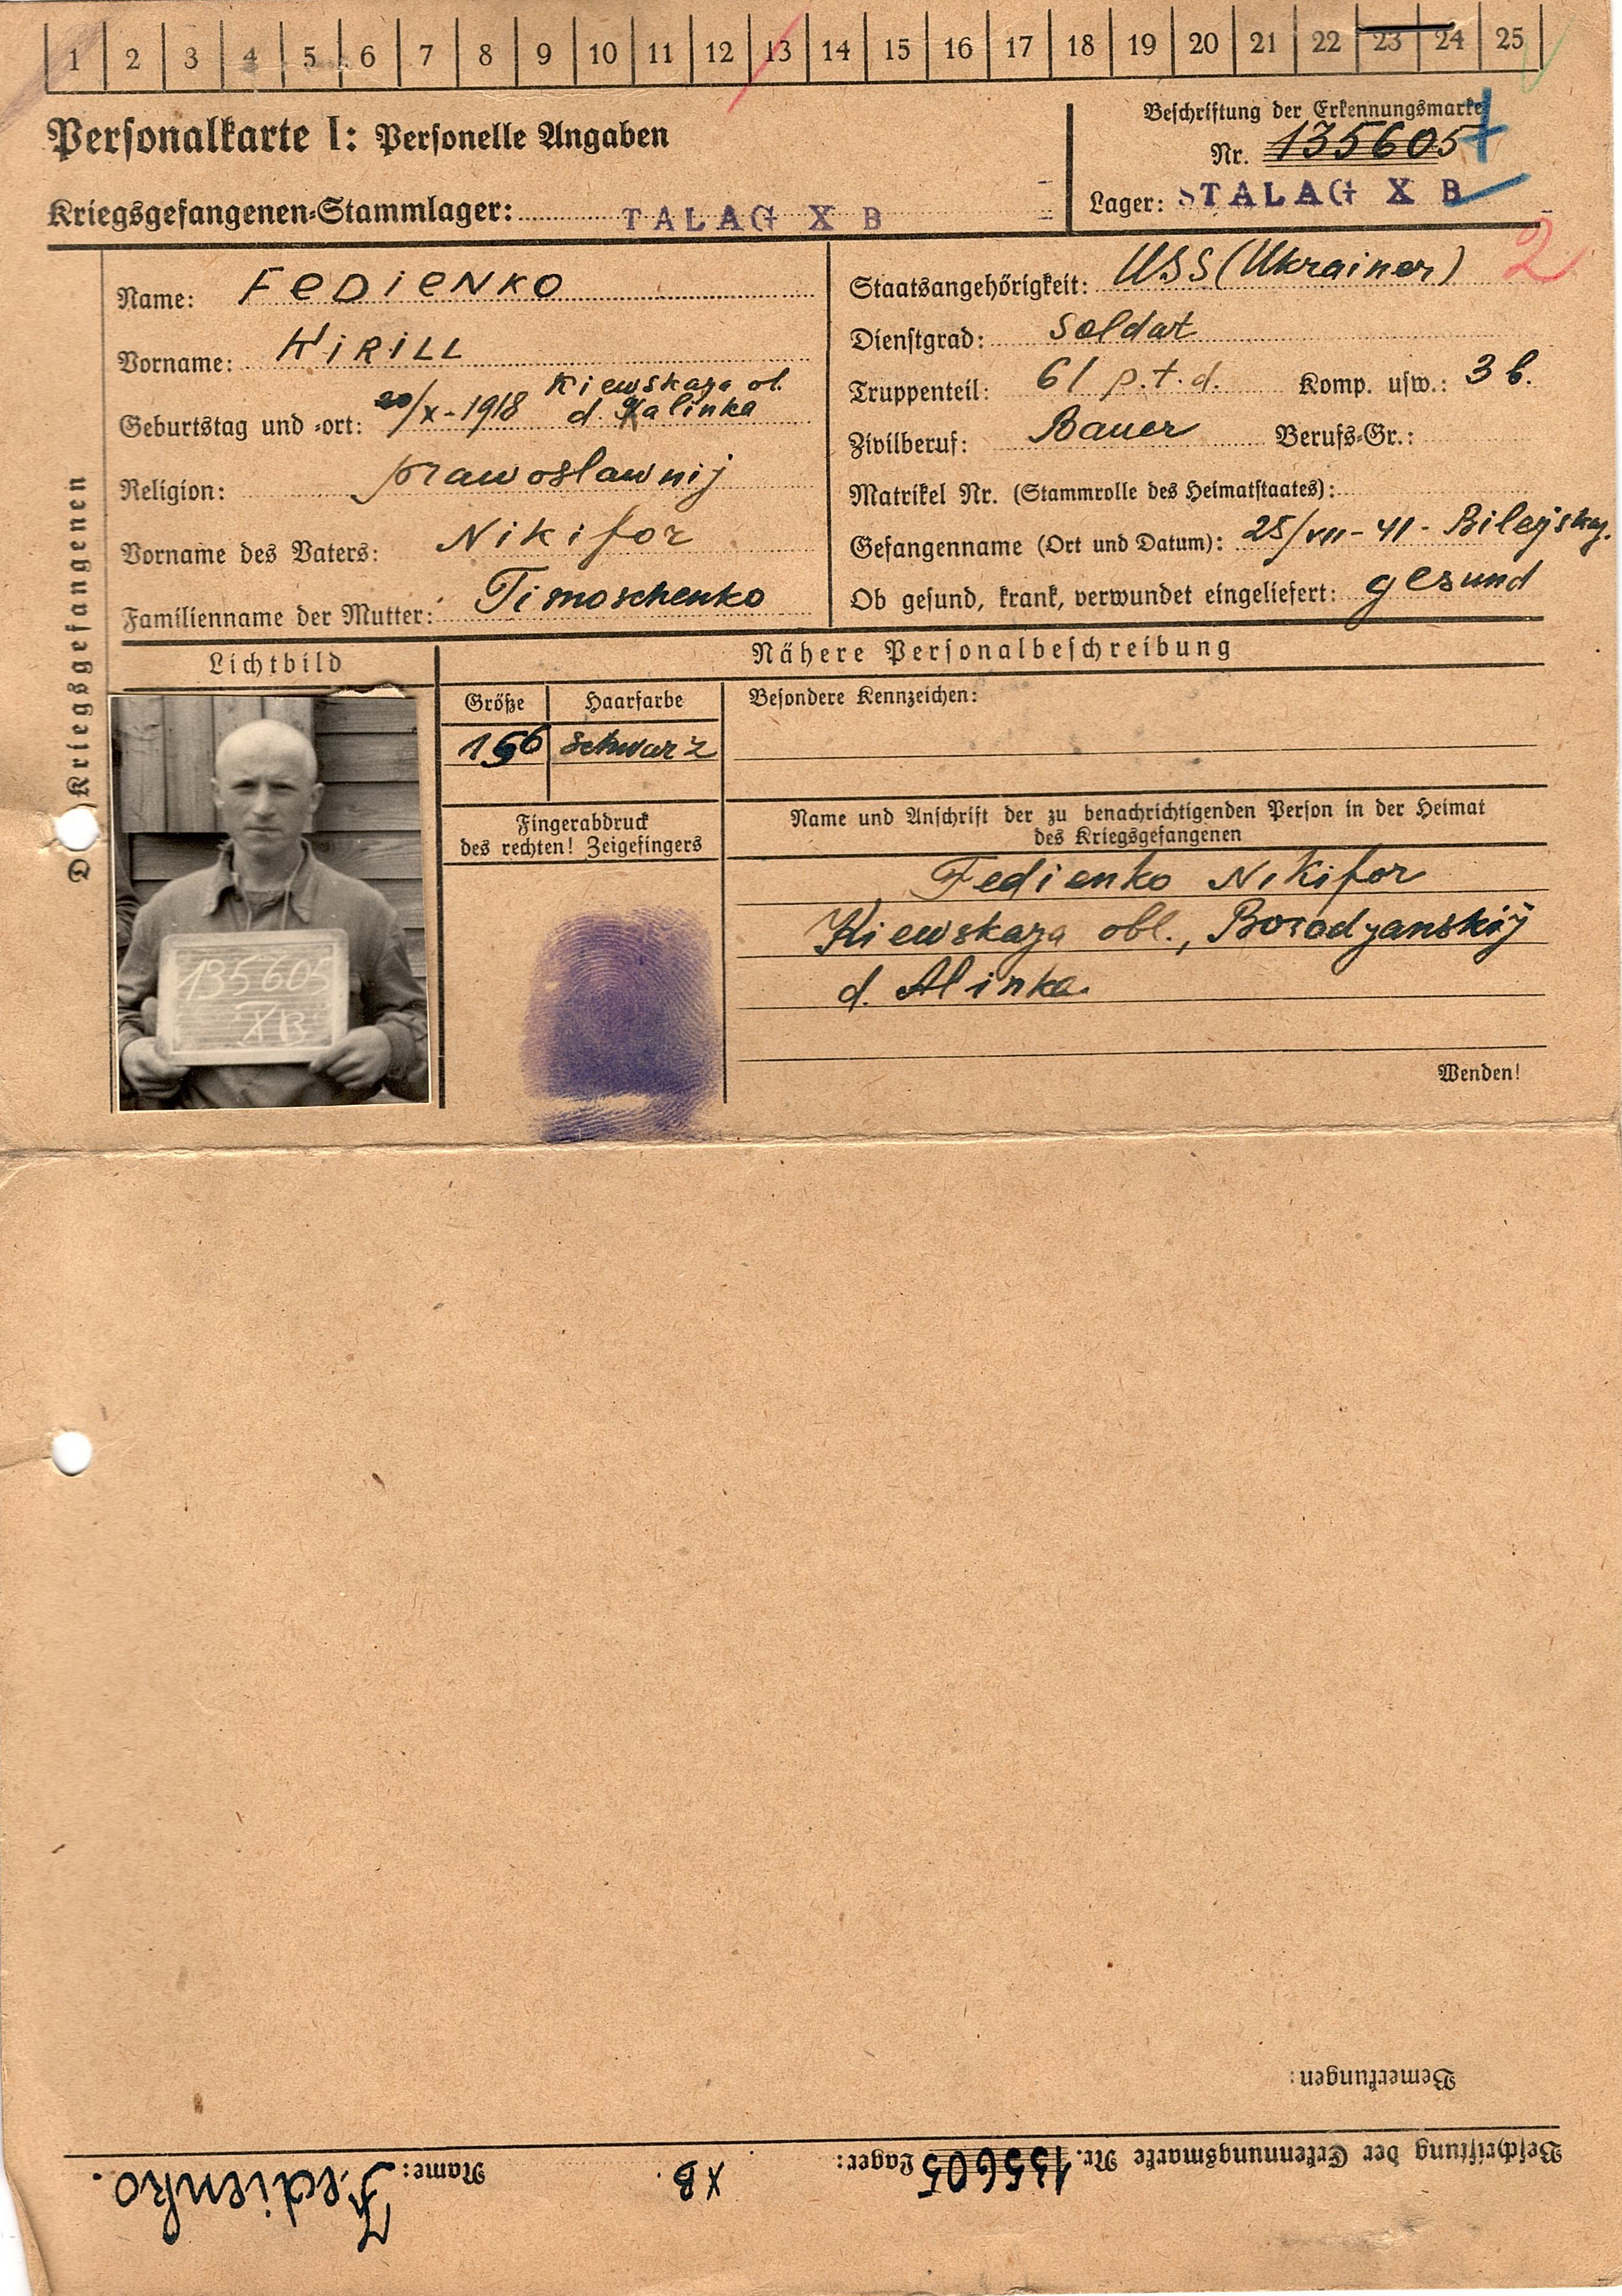 1 2 3 4 5 6 7 8 9 10 11 12 13 14 15 16 17 18 19 20 21 22 23 24 25
Personalkarte I: Personelle Angaben
Kriegsgefangenen-Stammlager: TALAG X B
Beschriftung der Erkennungsmarke
Nr. 135605
Lager: STALAG X B
2
Des Kriegsgefangenen
Name: FEDIENKO
Vorname: KIRILL
Geburtstag und -ort: 20/X-1918 Kiewskaya ob.
d. Kalinka
Religion: prawoslawnij
Vorname des Vaters: Nikifor
Familienname der Mutter: Timoschenko
Staatsangehörigkeit: USS (Ukrainer)
Dienstgrad: Soldat
Truppenteil: 61 p.t.d. Komp. usw.: 3 b.
Zivilberuf: Bauer Berufs-Gr.:
Matrikel Nr. (Stammrolle des Heimatstaates):
Gefangenname (Ort und Datum): 25/VII-41-
Ob gesund, krank, verwundet eingeliefert: gesund
Lichtbild
135605
XB
Nähere Personalbeschreibung
Größe Haarfarbe
166 schwarz
Fingerabdruck
des rechten! Zeigefingers
Besondere Kennzeichen:
Name und Anschrift der zu benachrichtigenden Person in der Heimat
des Kriegsgefangenen
Fedienko Nikifor
Kiewskaya obl., Borodyanskij
d. Alinka
Wenden!
Bemerkungen:
Beschriftung der Erkennungsmarke Nr. 135605 Lager: XB. Name: Fedienko.